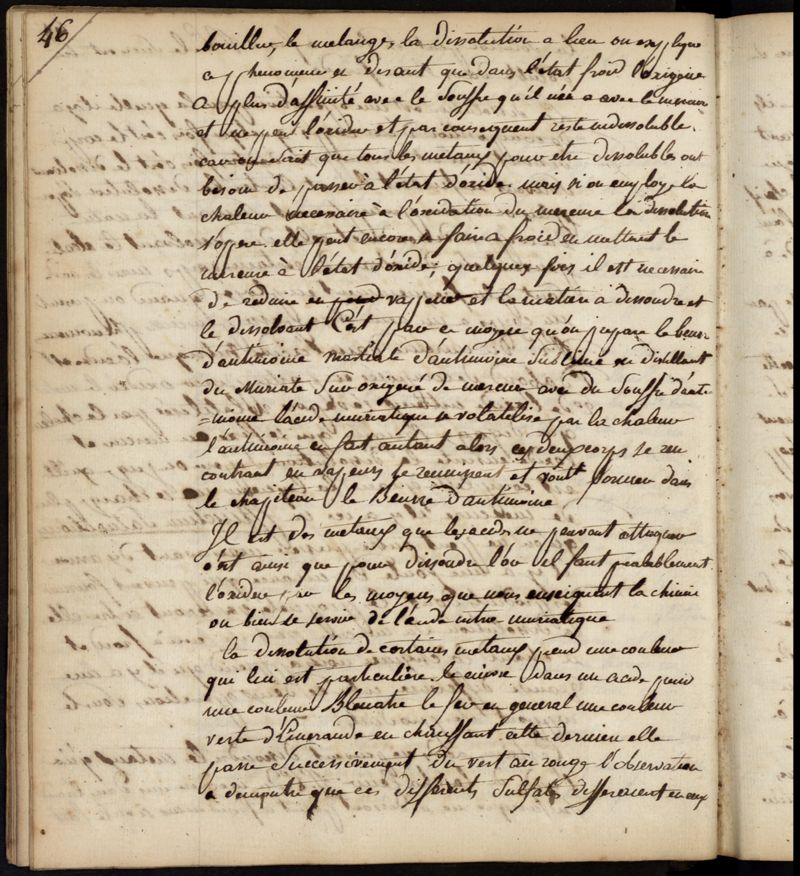 46
bouillir, le melange, la dissolution a lieu on explique
ce phenomene en disant que dans l'état froid l'oxigène
a plus d'affinité avec le Souffre qu'il n'en a avec le mercure
et ne peut l'oxider et par consequent reste indissoluble.
car on sait que tous les metaux pour etre dissolubles ont
besoin de passer à l'état d'oxide. mais si on employe la
chaleur necessaire à l'oxidation du mercure la dissolution
s'opere. elle peut encore se faire a froid en mettant le
mercure à l'état d'oxide; quelques fois il est necessaire
de reduire en vapeur et la matiere a dissoudre et
le dissolvant C'est par ce moyen qu'on prepare le beurre
d'antimoine muriate d'antimoine Sublimé en distillant
du Muriate Suroxigené de mercure avec du Souffre d'anti
=moine l'acide muriatique se volatilise par la chaleur
l'antimoine en fait autant alors ces deux corps se ren
contrant en vapeurs se reunissent et vont former dans
le chapiteau le Beurre d'antimoine
Il est des metaux que les acides ne peuvent attaquer
c'est ainsi que pour dissoudre l'or il faut prealablement
l'oxider par les moyens que nous enseignent la chimie
ou bien se servir de l'acide nitro muriatique
la dissolution de certains metaux prend une couleur
qui lui est particulière le cuivre dans un acide prend
une couleur Bleuatre le fer en general une couleur
verte d'Emeraude en chauffant cette derniere elle
passe Successivement du vert au rouge l'observation
a demontré que ces differents Sulfates differoient entr'eux